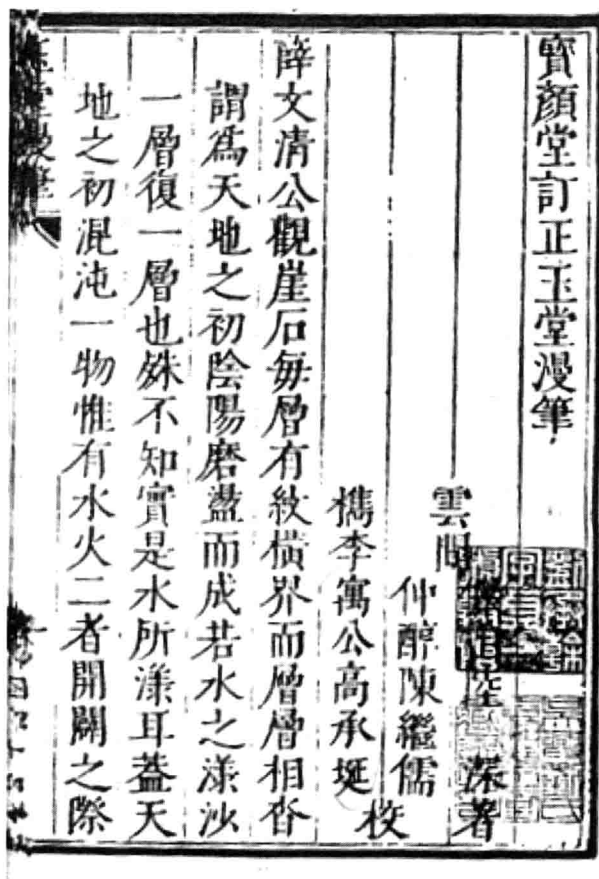 寶顏堂訂正玉堂漫筆
雲間 陸 深著
仲醇陳繼儒
檇李寓公高承埏 校
薛文清公觀崖石每層有紋橫界而層層相沓
謂為天地之初陰陽磨盪而成若水之漾沙
一層復一層也殊不知實是水所漾耳蓋天
地之初混沌一物惟有水火二者開闢之際
玉堂漫筆